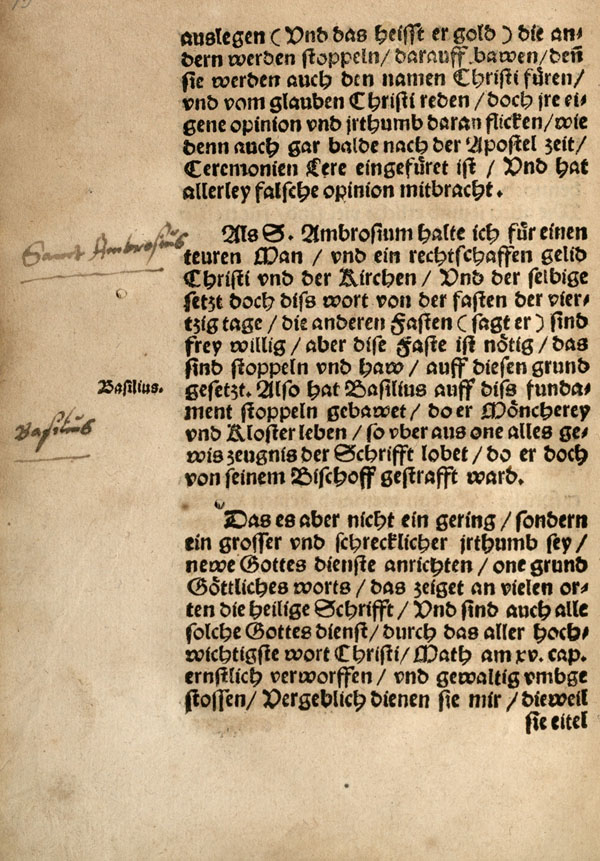 auslegen ( Vnd das heisst er gold ) die an⸗
dern werden stoppeln/ darauff bawen/ deñ
sie werden auch den namen Christi füren/
vnd vom glauben Christi reden / doch jre ei⸗
gene opinion vnd jrthumb daran flicken/ wie
denn auch gar balde nach der Apostel zeit/
Ceremonien Lere eingefüret ist / Vnd hat
allerley falsche opinion mitbracht.
Als S. Ambrosium halte ich für einen
teuren Man / vnd ein rechtschaffen gelid
Christi vnd der Kirchen / Vnd der selbige
setzt doch diss wort von der fasten der vier⸗
tzig tage / die anderen Fasten ( sagt er ) sind
frey willig / aber dise Faste ist nötig / das
sind stoppeln vnd haw / auff diesen grund
gesetzt. Also hat Basilius auff diss funda⸗
ment stoppeln gebawet / do er Möncherey
vnd Kloster leben / so vber aus one alles ge⸗
wis zeugnis der Schrifft lobet / do er doch
von seinem Bischoff gestrafft ward.
Das es aber nicht ein gering / sondern
ein grosser vnd schrecklicher jrthumb sey /
newe Gottes dienste anrichten / one grund
Göttliches worts / das zeiget an vielen or⸗
ten die heilige Schrifft / Vnd sind auch alle
solche Gottes dienst/ durch das aller hoch⸗
wichtigste wort Christi/ Math am xv. cap.
ernstlich verworffen / vnd gewaltig vmbge
stossen/ Vergeblich dienen sie mir / dieweil
sie eitel
Sanct Ambrosius
Basilius.
Basilius